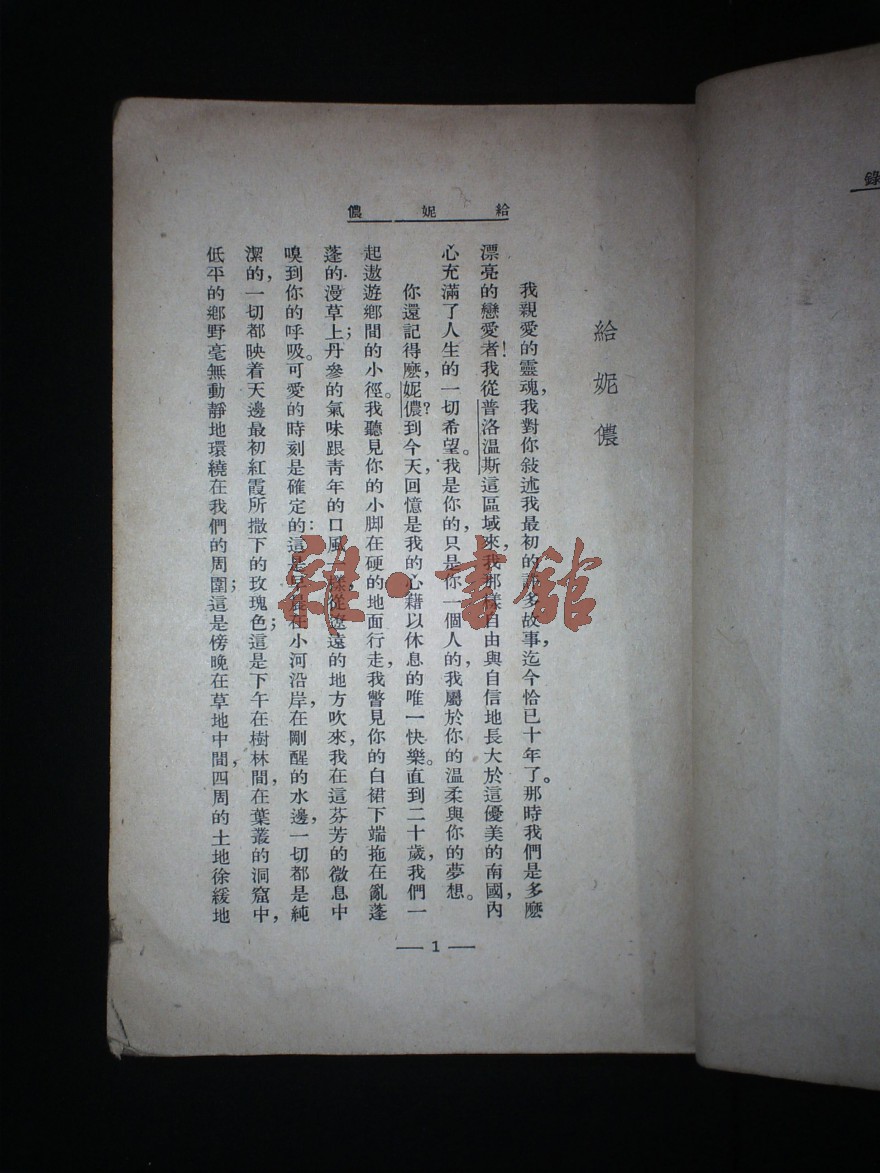 給妮儂
給妮儂
我親愛的靈魂，我對你敍述我最初的許多故事，迄今恰已十年了。那時我們是多麽
漂亮的戀愛者！我從普洛温斯這區域來，我那樣自由與自信地長大於這優美的南國，內
心充滿了人生的一切希望。我是你的，只是你一個人的，我屬於你的温柔與你的夢想。
你還記得麽，妮儂？到今天，回憶是我的心藉以休息的唯一快樂。直到二十歲，我們一
起遨遊鄉間的小徑。我聽見你的小脚在硬的地面行走，我瞥見你的白裙下端拖在亂蓬
蓬的漫草上；丹參的氣味跟靑年的口風一樣從遼遠的地方吹來，我在這芬芳的微息中
嗅到你的呼吸。可愛的時刻是確定的：這是早晨在小河沿岸，在剛醒的水邊，一切都是純
潔的，一切都映着天邊最初紅霞所撒下的玫瑰色；這是下午在樹林間，在葉叢的洞窟中，
低平的鄕野毫無動靜地環繞在我們的周圍；這是傍晚在草地中間，四周的土地徐緩地
— 1 —
錄
雜·書館